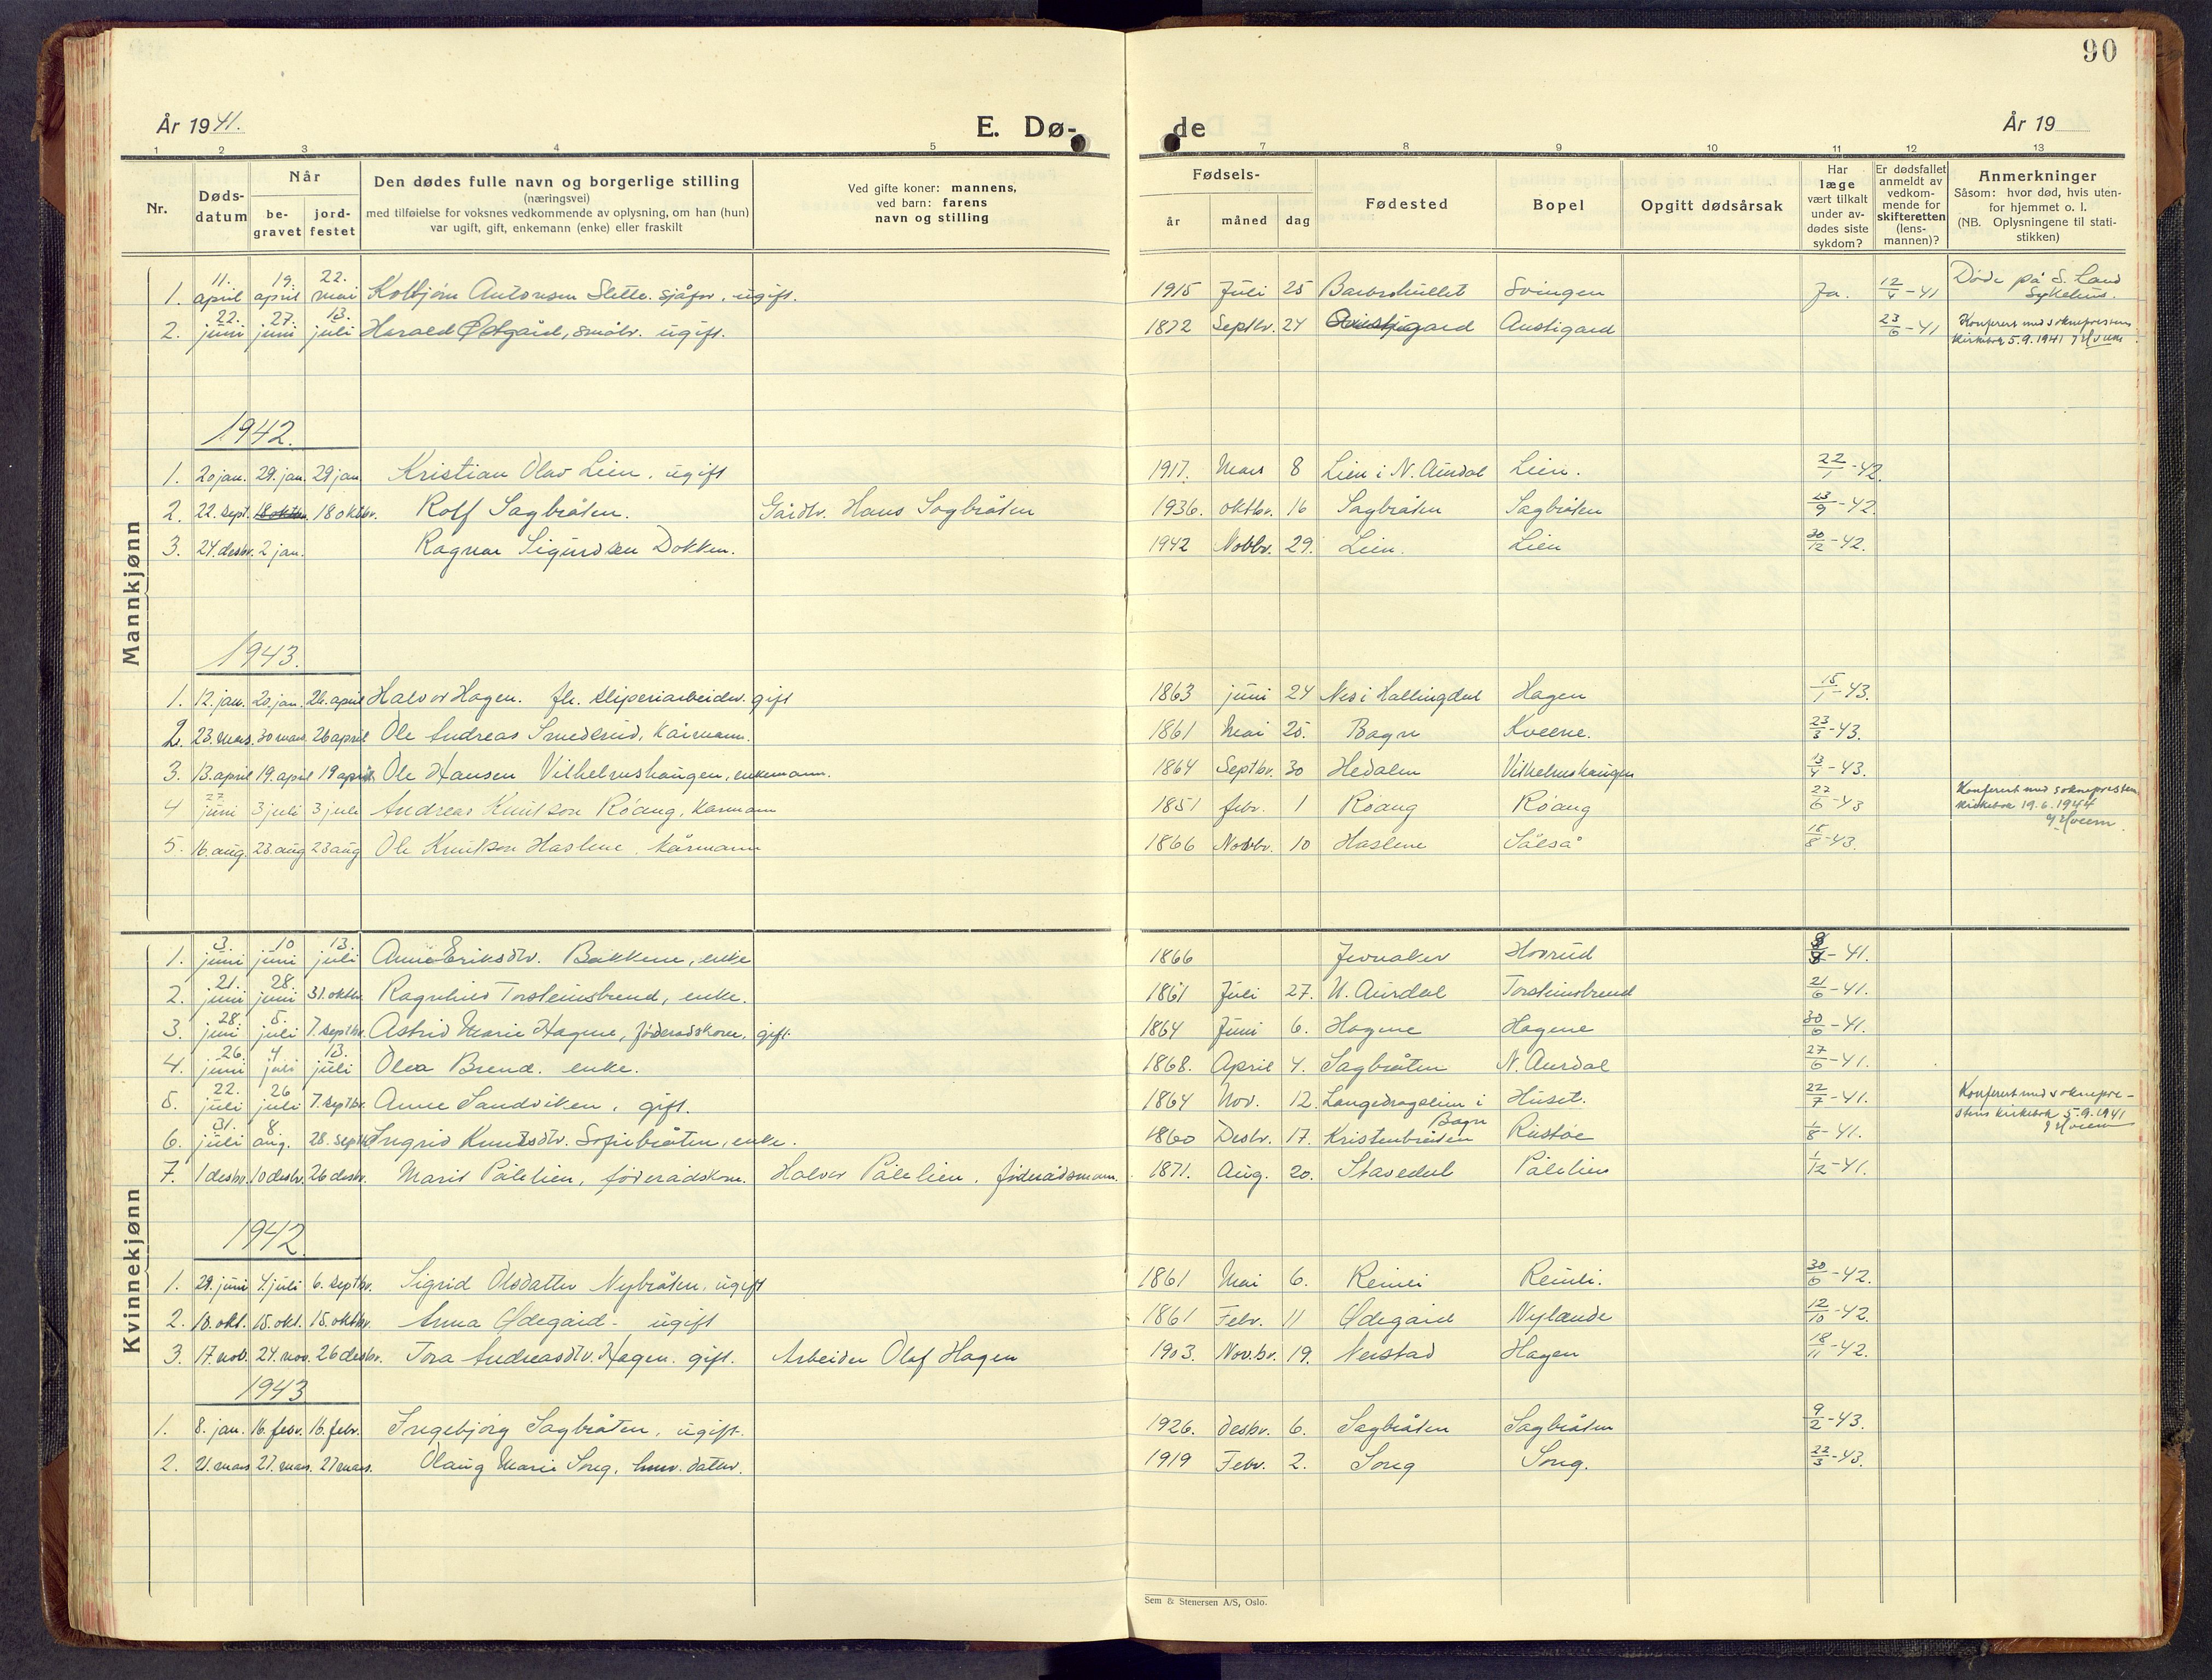 90
År 1941.
E. Dø-
de
År 19
1 2 3 4 5 7 8 9 10 11 12 13
Nr.
Døds-
datum
Når
be-
gravet
jord-
festet
Den dødes fulle navn og borgerlige stilling
(næringsvei)
med tilføielse for voksnes vedkommende av oplysning, om han (hun)
var ugift, gift, enkemann (enke) eller fraskilt
Ved gifte koner: mannens,
ved barn: farens
navn og stilling
Fødsels-
år måned dag
Fødested
Bopel
Opgitt dødsårsak
Har
læge
vært tilkalt
under av-
dødes siste
sykdom?
Er dødsfallet
anmeldt av
vedkom-
mende for
skifteretten
(lens-
mannen)?
Anmerkninger
Såsom: hvor død, hvis uten-
for hjemmet o. l.
(NB. Oplysningene til stati-
stikken)
Mannkjønn
1. 11. april 19. april 22. mai Kolbjørn Antonsen Slette. sjåfør, ugift. 1915 Juli 25 Svingen Ja. 12/4-41 Døde på S. Land
Sykehus.
2. 22. juni 27. juni 13. juli Harald Østgård, småbr. ugift. 1872 Septbr. 24 Austigard 23/6-41 Konferert med sokneprestens
kirkebok 5.9.1941
1942.
1. 20 jan. 29. jan. 29 jan Kristian Olav Lien, ugift 1917. Mars 8 Lien i N. Aurdal Lien. 22/1-42.
2. 22. sept. 18 oktbr. 18 oktbr. Rolf Sagbråten. Gårdbr. Hans Sagbråten 1936. oktbr. 16 Sagbråten Sagbråten 23/9-42.
3. 24. desbr. 2 jan. Ragnar Sigurdsen Dokken. 1942 Novbr. 29. Lien. Lien 30/12-42.
1943.
1. 12. jan. 20. jan. 26. april Halvor Hagen. fh. sliperiarbeider. gift 1863 juni 24 Nes i Hallingdal Hagen 15/1-43.
2. 23. mars. 30 mars. 26 april Ole Andreas Smedsrud, kårmann. 1861 Mai 25. Bagn Kveene. 23/3-43.
3. 13. april 19. april 19 april Ole Hansen Vilhelmshaugen, enkemann. 1864 Septbr. 30 Hedalen Vilhelmshaugen 13/4-43.
4 27 juni 3 juli 3 juli Andreas Knutson Röang, kårmann 1851 febr. 1 Röang Röang 27/6-43 Konferert med sokneprestens
kirkebok 19.6.1944
5. 16. aug. 23. aug 23 aug Ole Knutson Haslene, kårmann 1866 Novbr. 10 Haslene 18/8-43.
Kvinnekjønn
1. 3. juni 10 juni 13. juli Anne Eriksdtr. Bakkene, enke 1866 Jevnaker Hovrud -41.
2. 21. juni 28. juni 31. oktbr. Ragnhild Torsteinsbrend, enke. 1861 Juli 27. N. Aurdal Torsteinsbrend 21/6-41.
3. 28. juni 5. juli 7. septbr. Astrid Marie Hagene, föderådskone, gift. 1864 Juni 6. Hagene Hagene 30/6-41.
4. 26. juni 4 juli 13. juli Olea Brend. enke. 1868. April 4. Sagbråten N. Aurdal 27/6-41.
5. 22. juli 26 juli 7. septbr. Anne Sandviken, gift. 1864 Nov. 12. Langedragslien i
Bagn Huset. 22/7-41. Konferert med soknepre-
stens kirkebok 5.9.1941
6. 31. juli 8. aug. 28. septbr. Ingrid Knutsdtr. Sofiebråten, enke. 1860 Desbr. 17. Kristenbråten Rustøe 1/8-41.
7. 1 desbr. 10 desbr. 26 desbr. Marit Pålelien, föderådskone. Halvor Pålelien, föderådsmann. 1871. Aug. 20. Stavedal Pålelien 1/12-41.
1942
1. 29. juni 4. juli 6. septbr. Sigrid Olsdatter Nybråten, ugift 1861 Mai 6. Reinli Reinli. 30/6-42.
2. 10. okt. 15. okt. 15. oktbr. Anna Ødegård - ugift 1861 Febr. 11 Ødegård Nylænde 12/10-42.
3. 17. nov. 24. nov. 26 desbr. Tora Andreasdtr. Hagen. gift. Arbeider Olaf Hagen 1903. Nov.br. 19. Neistad Hagen 18/11-42.
1943
1. 8. jan. 16. febr. 16. febr. Ingebjörg Sagbråten, ugift. 1926. desbr. 6. Sagbråten Sagbråten 9/2-43.
2. 21. mars 27. mars. 27 mars. Olaug Marie Song, datter. 1919 Febr. 2. Song Song. 22/3-43.
Sem & Stenersen A/S, Oslo.